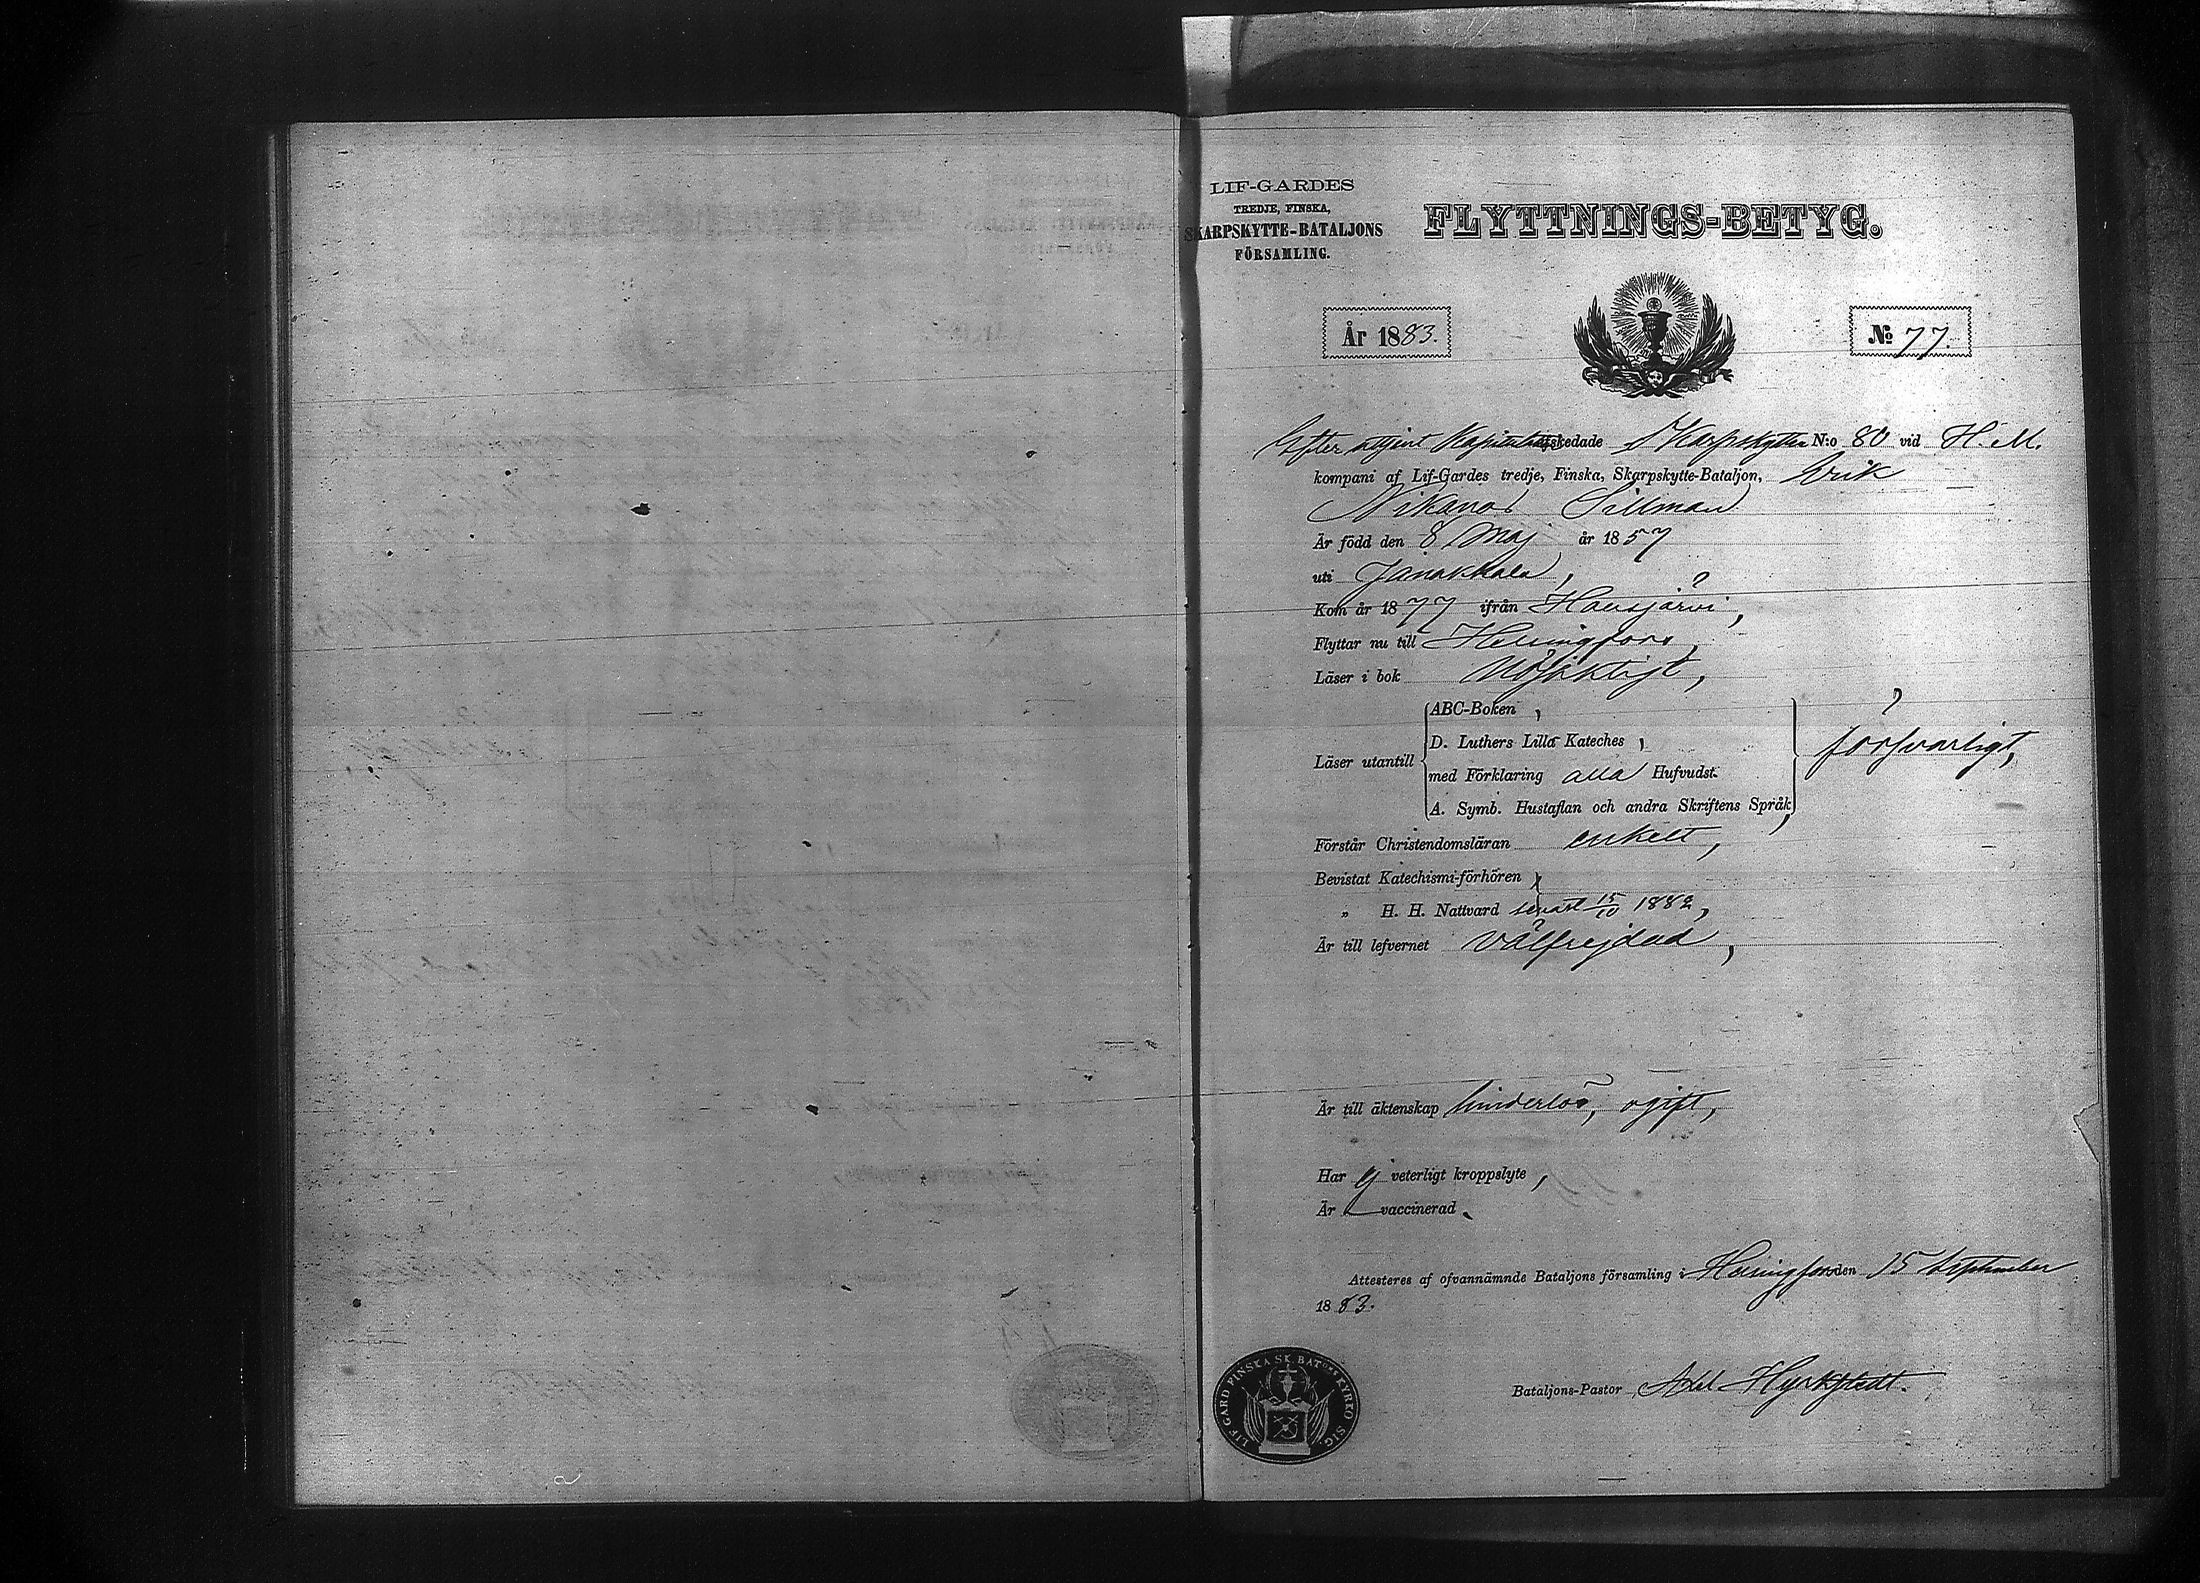 LIF-GARDES
TREDJE, FINSKA,
SKARPSKYTTE-BATALJONS
FÖRSAMLING.
FLYTTNINGS-BETYG.
År 1883.
No 77.
Efter uttjent Kapitulat afskedade Skarpskytten N:o 80 vid H. M.
kompani af Lif-Gardes tredje, Finska, Skarpskytte-Bataljon, Erik
Nikanor Sillman
Är född den 8 Maj år 1857
uti Janakkala,
Kom år 1877 ifrån Hausjärvi,
Flyttar nu till Helsingfors,
Läser i bok nöjaktigt,
ABC-Boken,
D. Luthers Lilla Kateches,
Läser utantill
med Förklaring alla Hufvudst.
A. Symb. Hustaflan och andra Skriftens Språk,
försvarligt,
Förstår Christendomsläran enkelt,
Bevistat Katechismi-förhören
„ H. H. Nattvard senast 15/10 1882,
Är till lefvernet välfrejdad,
Är till äktenskap hinderlös, ogift,
Har ej veterligt kroppslyte,
Är vaccinerad.
Attesteras af ofvannämnde Bataljons församling i Helsingfors den 15 September
1883.
Bataljons-Pastor Axel Hyrkstedt.
LIF GARD FINSKA SK. BATONS KYRKO SIG.